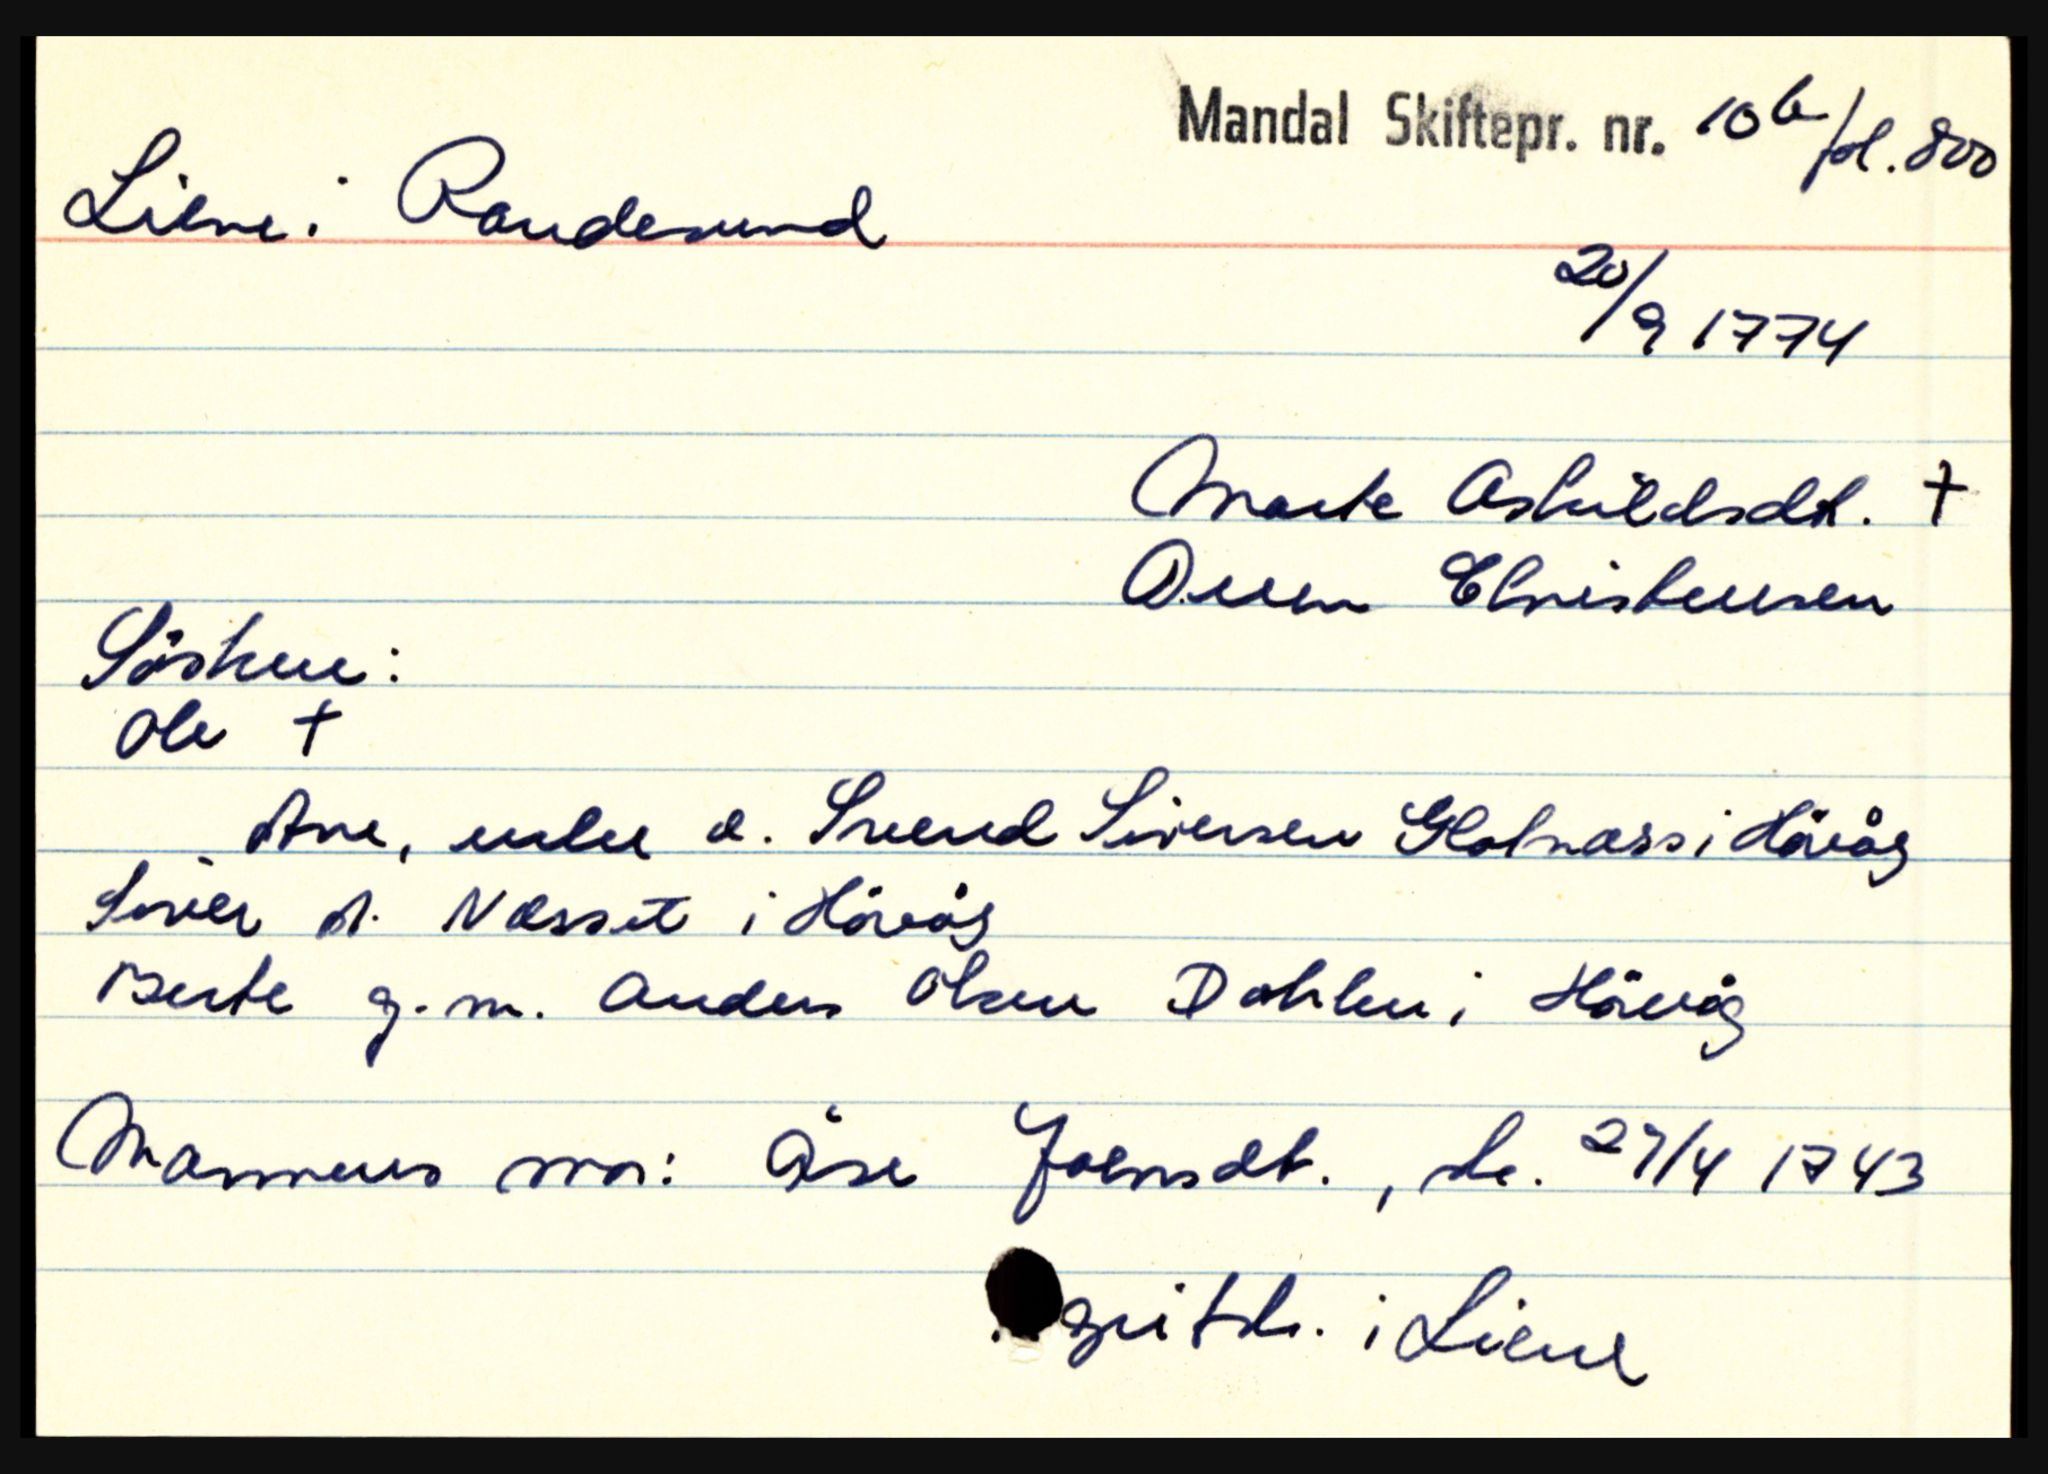 Mandal Skiftepr. nr. 10b/fol. 800
Liene i Randesund
20/9 1774
Marte Askildsdtr. †
Ouen Christensen
Sösken:
Ole †
Ane, enke e. Svend Siversen Glatnæss i Hövåg
Siver A. Næsset i Hövåg
Berte g.m. Anders Olsen Dahlen i Hövåg
Mannens mor: Åse Joensdt., sk. 27/4 1743
i Liene